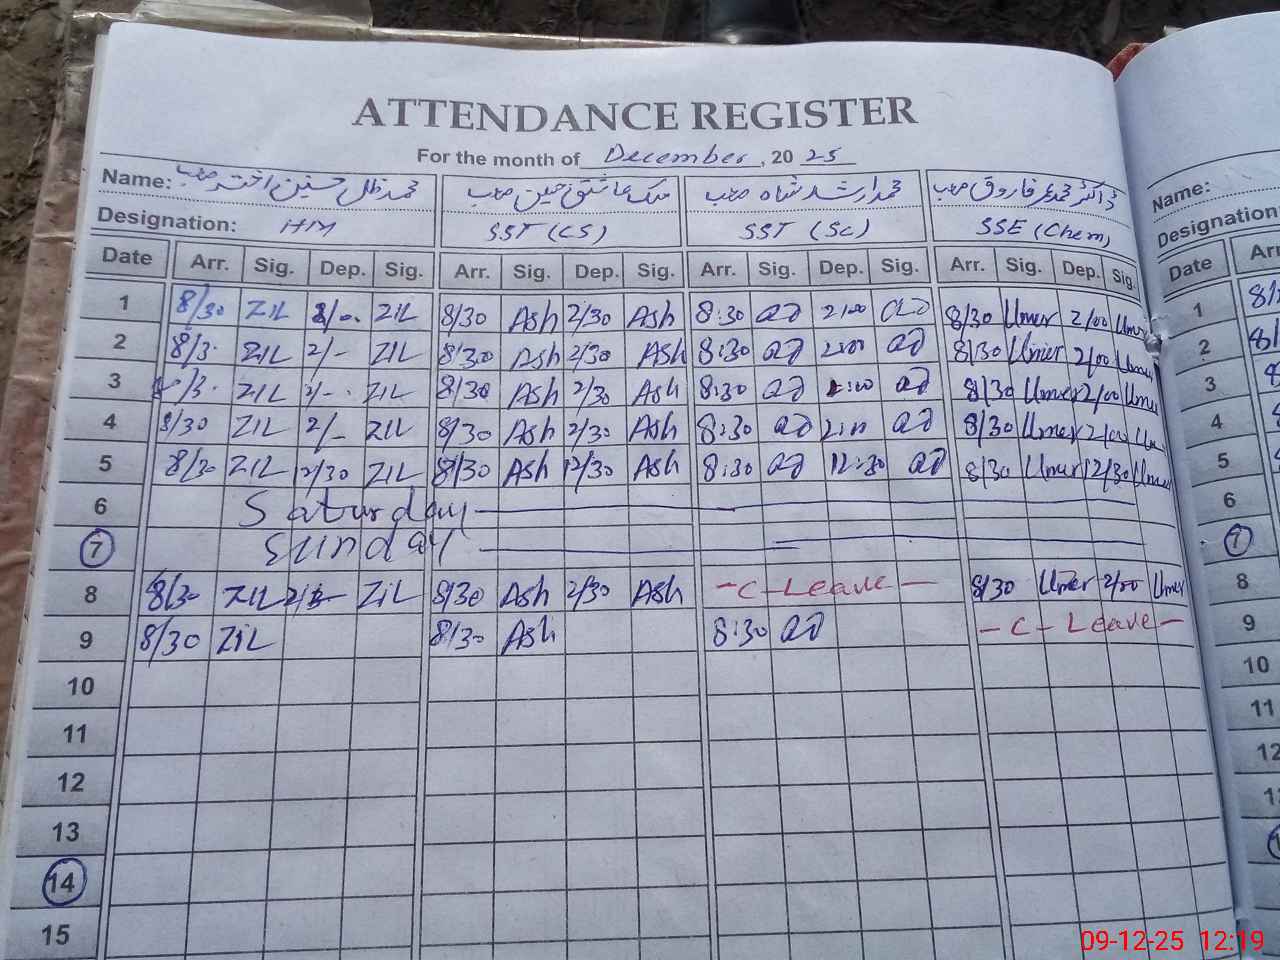 ATTENDANCE REGISTER
For the month of December, 2025
Name: محمد ظل حسنین اختر صاحب ملک عاشق حسین صاحب محمد ارشد شاہ صاحب ڈاکٹر محمد عمر فاروق صاحب Name:
Designation: HM SST (CS) SST (Sc) SSE (Chem) Designation
Date Arr. Sig. Dep. Sig. Arr. Sig. Dep. Sig. Arr. Sig. Dep. Sig. Arr. Sig. Dep. Sig. Date Arr
1 8/30 ZIL 2/-. ZIL 8/30 Ash 2/30 Ash 8:30 2:00 8/30 Umer 2/00 Umer 1
2 8/3. ZIL 2/- ZIL 8/30 Ash 2/30 Ash 8:30 2:00 8/30 Umer 2/00 Umer 2
3 8/3. ZIL 2/-. ZIL 8/30 Ash 2/30 Ash 8:30 2:00 8/30 Umer 2/00 Umer 3
4 8/30 ZIL 2/- ZIL 8/30 Ash 2/30 Ash 8:30 8/30 Umer 2/00 Um 4
5 8/30 ZIL 12/30 ZIL 8/30 Ash 12/30 Ash 8:30 12:30 8/30 Umer 12/30 Umer 5
6 Saturday 6
7 Sunday 7
8 8/30 ZIL ZIL 8/30 Ash 2/30 Ash - C - Leave - 8/30 Umer 2/00 Umer 8
9 8/30 ZIL 8/30 Ash 8:30 - C - Leave - 9
10 10
11 11
12 12
13
14
15
09-12-25 12:19